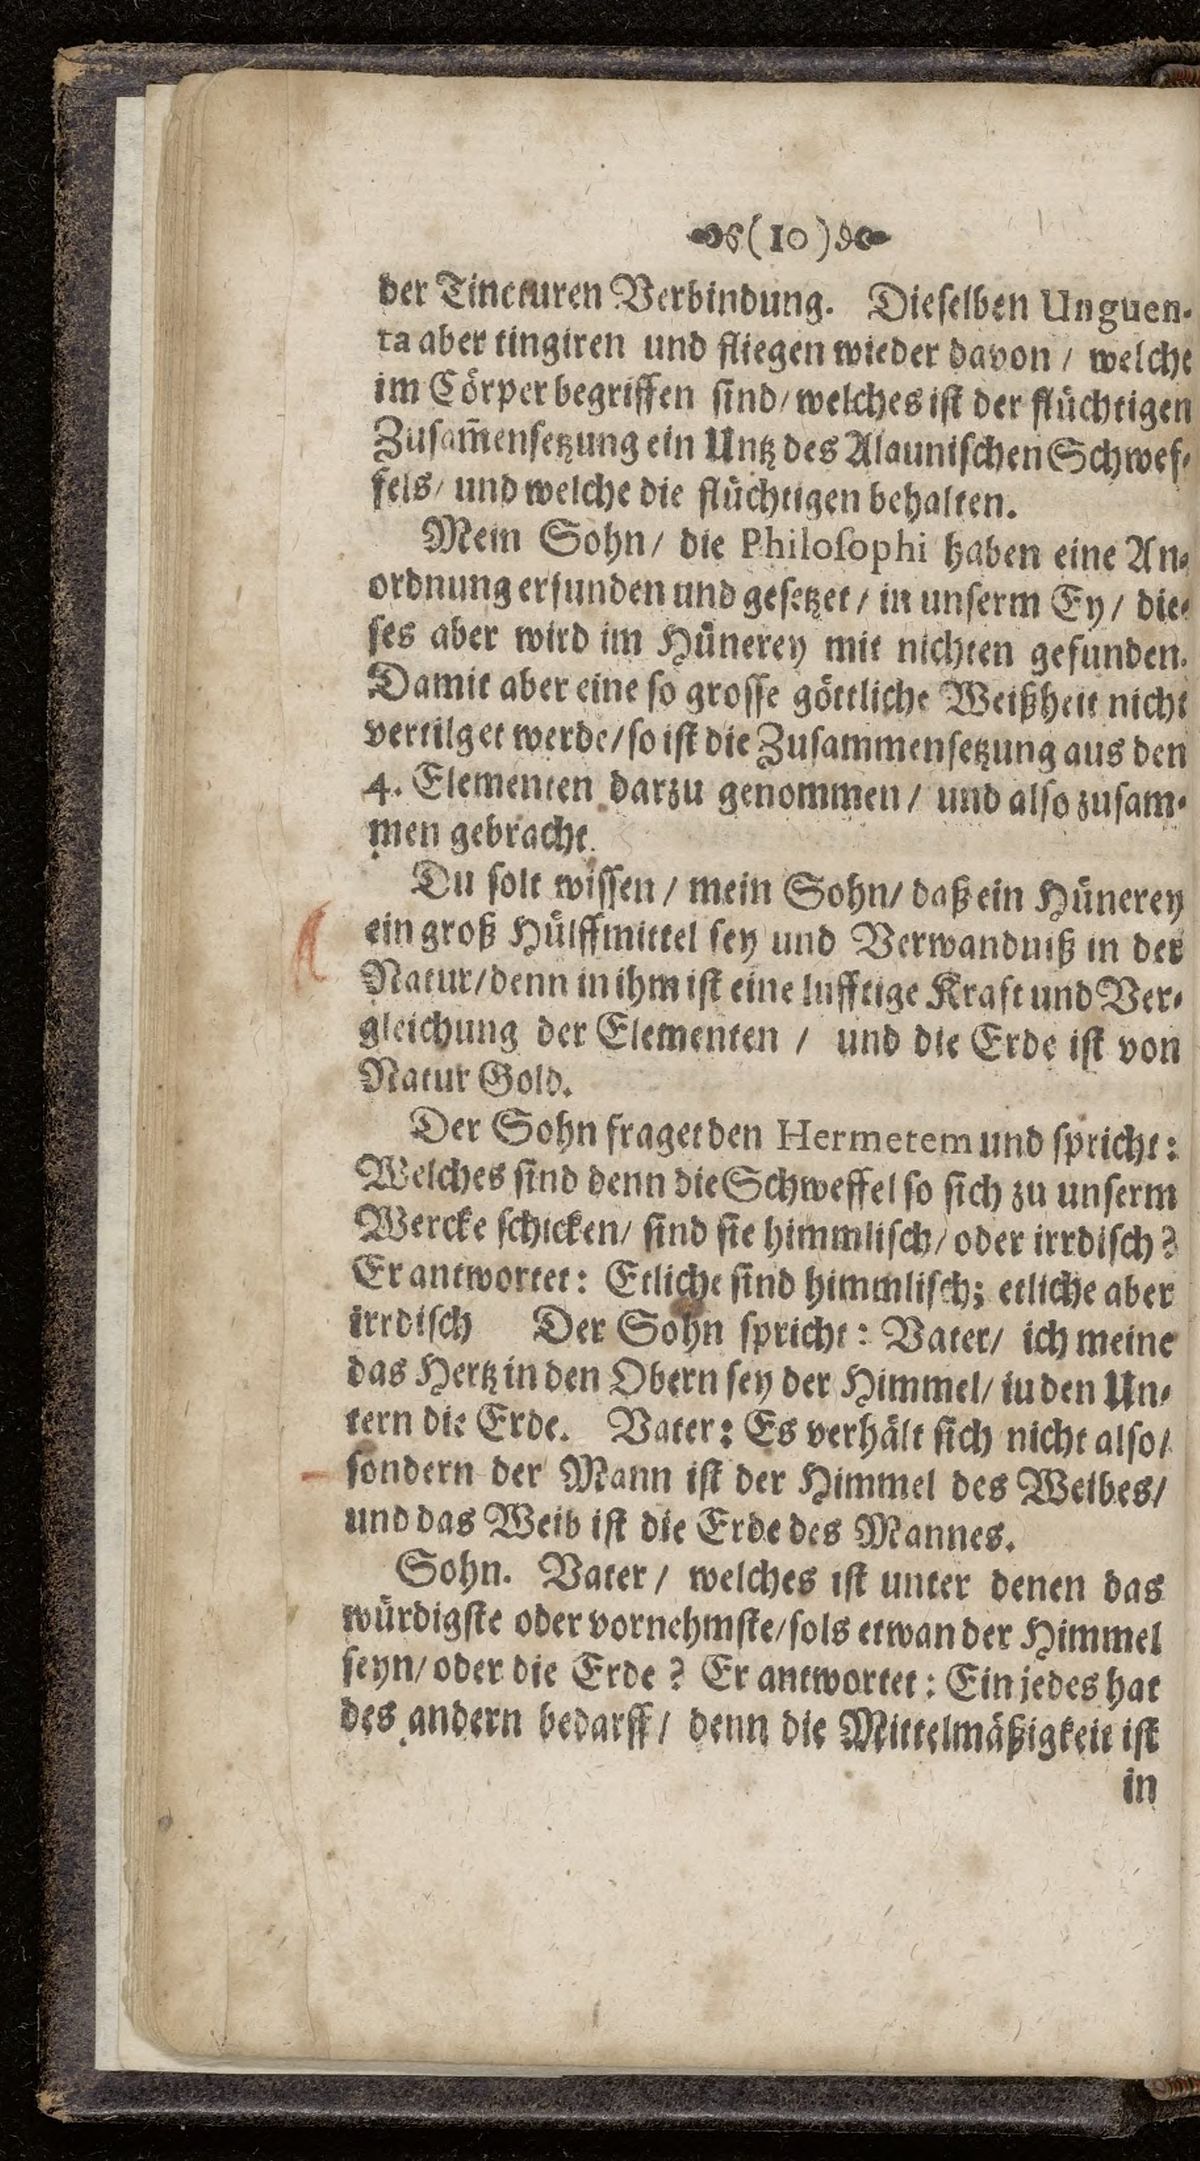 (10)
der Tincturen Verbindung. Dieselben Unguen-
ta aber tingiren und fliegen wieder davon / welche
im Cörper begriffen sind / welches ist der flüchtigen
Zusam̃ensetzung ein Untz des Alaunischen Schwef-
fels / und welche die flüchtigen behalten.
Mein Sohn / die Philosophi haben eine An-
ordnung erfunden und gesetzet / in unserm Ey / die-
ses aber wird im Hünerey mit nichten gefunden.
Damit aber eine so grosse göttliche Weißheit nicht
vertilget werde / so ist die Zusammensetzung aus den
4. Elementen darzu genommen / und also zusam-
men gebracht.
Du solt wissen / mein Sohn / daß ein Hünerey
ein groß Hülffmittel sey und Verwandniß in der
Natur / denn in ihm ist eine lufftige Kraft und Ver-
gleichung der Elementen / und die Erde ist von
Natur Gold.
Der Sohn fraget den Hermetem und spricht:
Welches sind denn die Schweffel so sich zu unserm
Wercke schicken / sind sie himmlisch / oder irrdisch?
Er antwortet: Etliche sind himmlisch; etliche aber
irrdisch Der Sohn spricht: Vater / ich meine
das Hertz in den Obern sey der Himmel / iu den Un-
tern die Erde. Vater: Es verhält sich nicht also /
sondern der Mann ist der Himmel des Weibes /
und das Weib ist die Erde des Mannes.
Sohn. Vater / welches ist unter denen das
würdigste oder vornehmste / sols etwan der Himmel
seyn / oder die Erde? Er antwortet: Ein jedes hat
des andern bedarff / denn die Mittelmäßigkeit ist
in